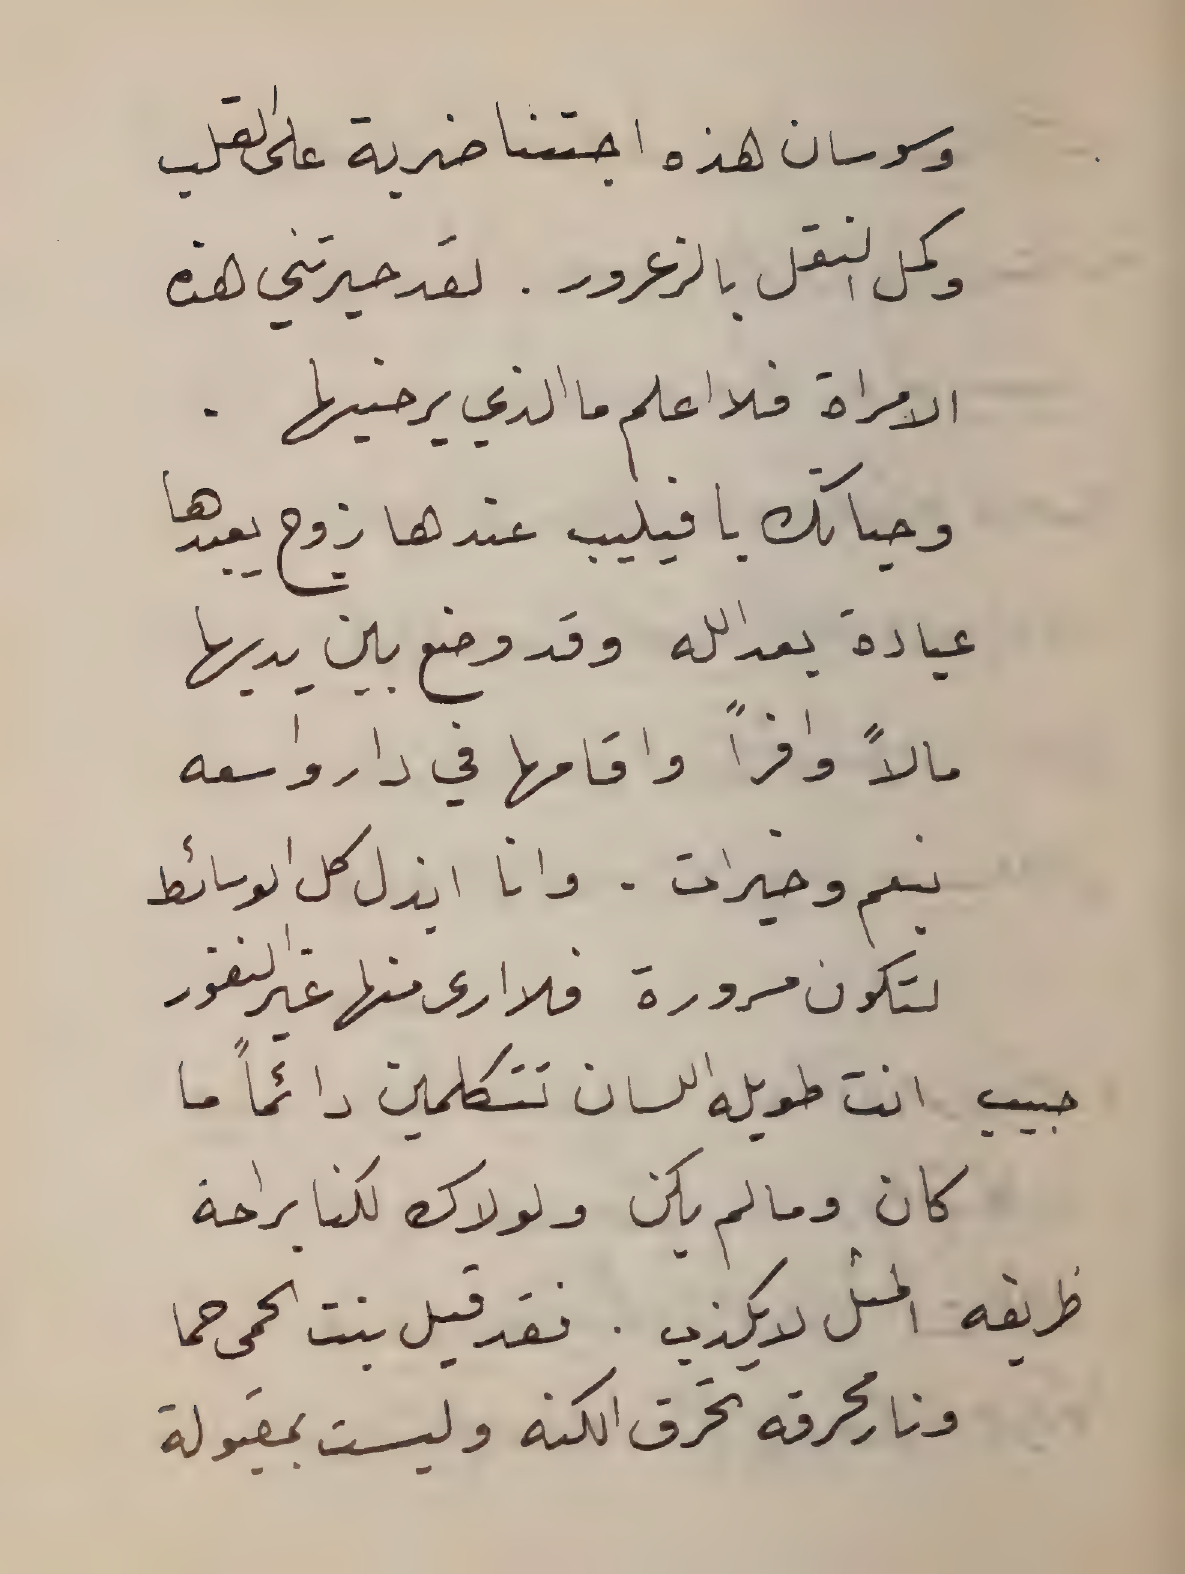 وسوسان هذه اجتنا ضربة على القلب
وكمل النقل بالزعرور . لقد حيرتني هذه
الامراة فلا اعلم ما الذي يرضيها .
وحياتك يا فيليب عندها زوج يعبدها
عبادة بعد الله وقد وضع بين يديها
مالاً وافراً واقامها في دار واسعه
بنعم وخيرات . وانا ابذل كل الوسائط
لتكون مسرورة فلا ارى منها غير النفور
حبيب انت طويله اللسان تتكلمين دائماً ما
كان وما لم يكن ولولاك لكنا براحة
ظريفه المثل لا يكذب . فقد قيل بنت الحمى حما
ونار محرقه تحرق الكنه وليست بمقبولة